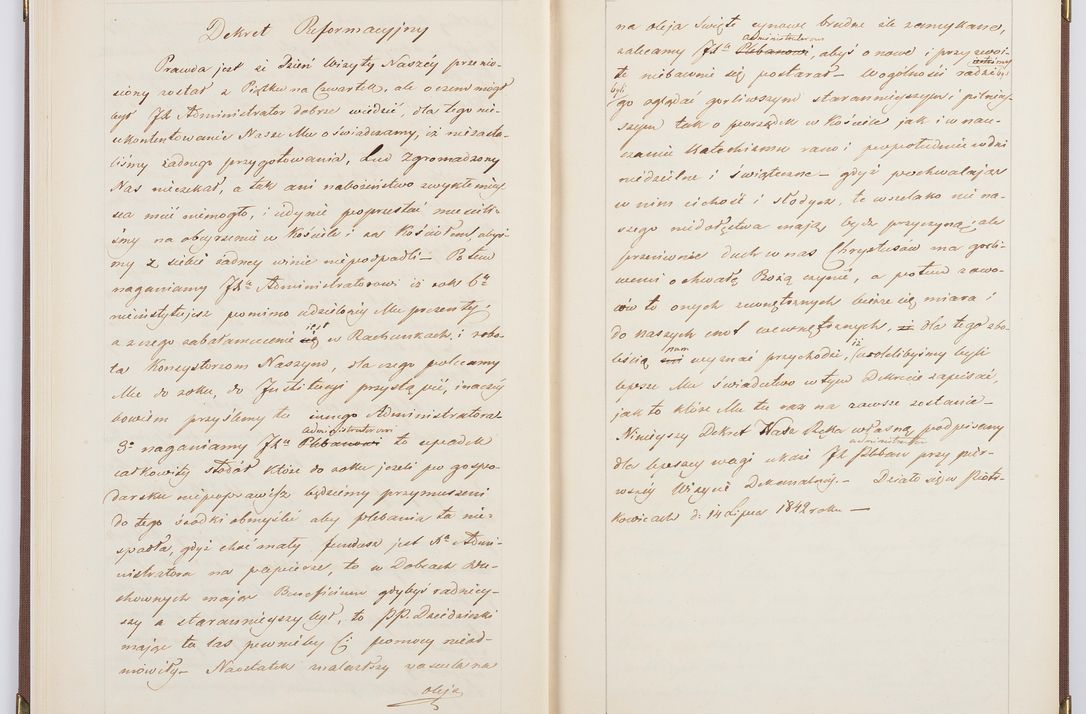 Dekret Reformacyjny
Prawda jest że dzień wizyty Naszéy przenie-
siony został z Piątku na Czwartek, ale o czem mógł
być JX Administrator dobrze wiedzieć, dla tego nie-
ukontentowanie Nasze Mu oświadczamy, iż niezasta-
liśmy żadnego przygotowania, Lud Zgromadzony
Nas nieczekał, a tak ani nabożeństwo zwykłe miey-
sca mieć niemogło, i iedynie poprzestać musieli-
śmy na obeyrzeniu w Kościele i za Kościołem, abyś-
my z siebie żadney winie niepospadli — Potem
naganiamy JXa Administratorowi iż rok 6a
pomimo udzielonéy Mu prezenty
a z tego zabałamucenie jest w Rachunkach, i
ta Konsystorzom Naszym, dla czego polecamy
Mu do roku, do Instytucyi przystąpić, inaczéy
bowiem przyślemy tu innego Administratora
administratorowi
3o naganiamy JXa Plebanowi to upadek
całkowity stodół które do roku jeżeli po gospo-
darsku niepoprawisz będziemy przymuszeni
do tego środki obmyślić aby plebania ta nie-
spadła, gdyż choć mały fundusz jest Xa Admi-
nistratora na papierze, to w Dobrach Du-
chownych mając Beneficium gdybyś radniey-
szy a staranniejszy był, to PP. Dziedziczki
mając tu las pewnieby Ci pomocy nieod-
mówiły — Naostatek malarszy naczelna
oleja
na oleja Święte cynowe brudne źle zamykane,
administratorowi
zalecamy JXu Plebanowi, abyś o nowe i przyzwoi-
te niebawnie się postarał — wogólności radzi
był
go oglądać gorliwszym staranniejszym i pilniey-
szym tak o porządek w Kościele jak i w nau-
czaniu Katechizmu rano i popołudnie w dni
niedzielne i świąteczne — gdyż pochwalając
w nim cichość i słodycz, te wszelako nie na-
szego niedołęstwa mają być przyczyną, ale
przeciwnie duch w nas Chrystusów ma gorli-
wemi o chwałę Bożą czynić, a potem zawo-
dów to onych zewnętrznych bierze się miara i
do naszych cnot wewnętrznych, dla tego zbo-
leścią nam wyznać przychodzi, iż wolelibyśmy byli
lepsze Mu świadectwo w tym Dekrecie zapisać,
jak to które Mu tu raz na zawsze zostanie —
Niniejszy Dekret Nasz Ręką własną podpisany
administrator
dla lepszey wagi ukaże JX Pleban przy pier-
wszéy Wizycie Dekanalnéy. — Działo się w Piotr-
kowicach d. 14 Lipca 1842 roku —